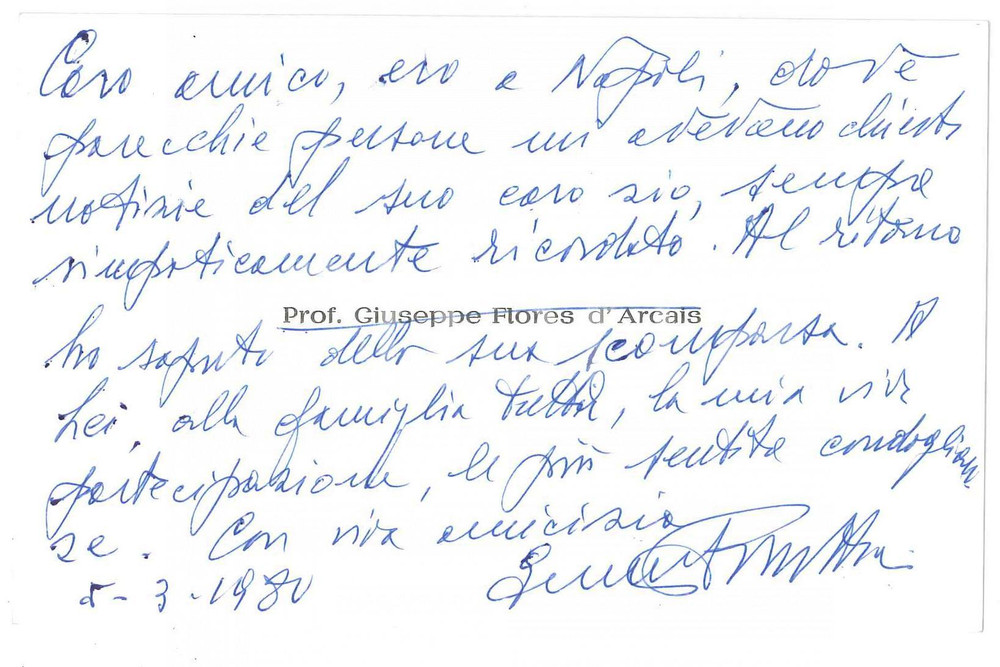 Caro amico, ero a Napoli, dove
parecchie persone mi avevano chiesto
notizie del suo caro zio, sempre
simpaticamente ricordato. Al ritorno
Prof. Giuseppe Flores d'Arcais
ho saputo della sua scomparsa. A
Lei, alla famiglia tutta, la mia viva
partecipazione, le più sentite condoglian
ze. Con viva amicizia
5-3-1980